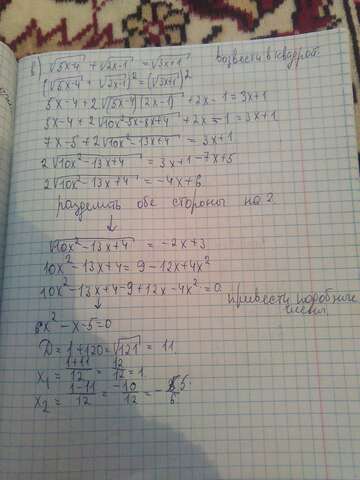 в) √5x-4 + √2x-1 = √3x+1 возвести в квадрат
(√5x-4 + √2x-1)² = (√3x+1)²
5x-4+2√(5x-4)(2x-1) + 2x-1 = 3x+1
5x-4+2√10x²-5x-8x+4 + 2x-1 = 3x+1
7x-5+2√10x²-13x+4 = 3x+1
2√10x²-13x+4 = 3x+1-7x+5
2√10x²-13x+4 = -4x+6
разделить обе стороны на 2
↓
√10x²-13x+4 = -2x+3
10x²-13x+4 = 9-12x+4x²
10x²-13x+4-9+12x-4x² = 0 привести подобные
↓ члены
6x²-x-5=0
D = 1+120 = √121 = 11
x₁ = 1+11/12 = 12/12 = 1
x₂ = 1-11/12 = -10/12 = -5/6